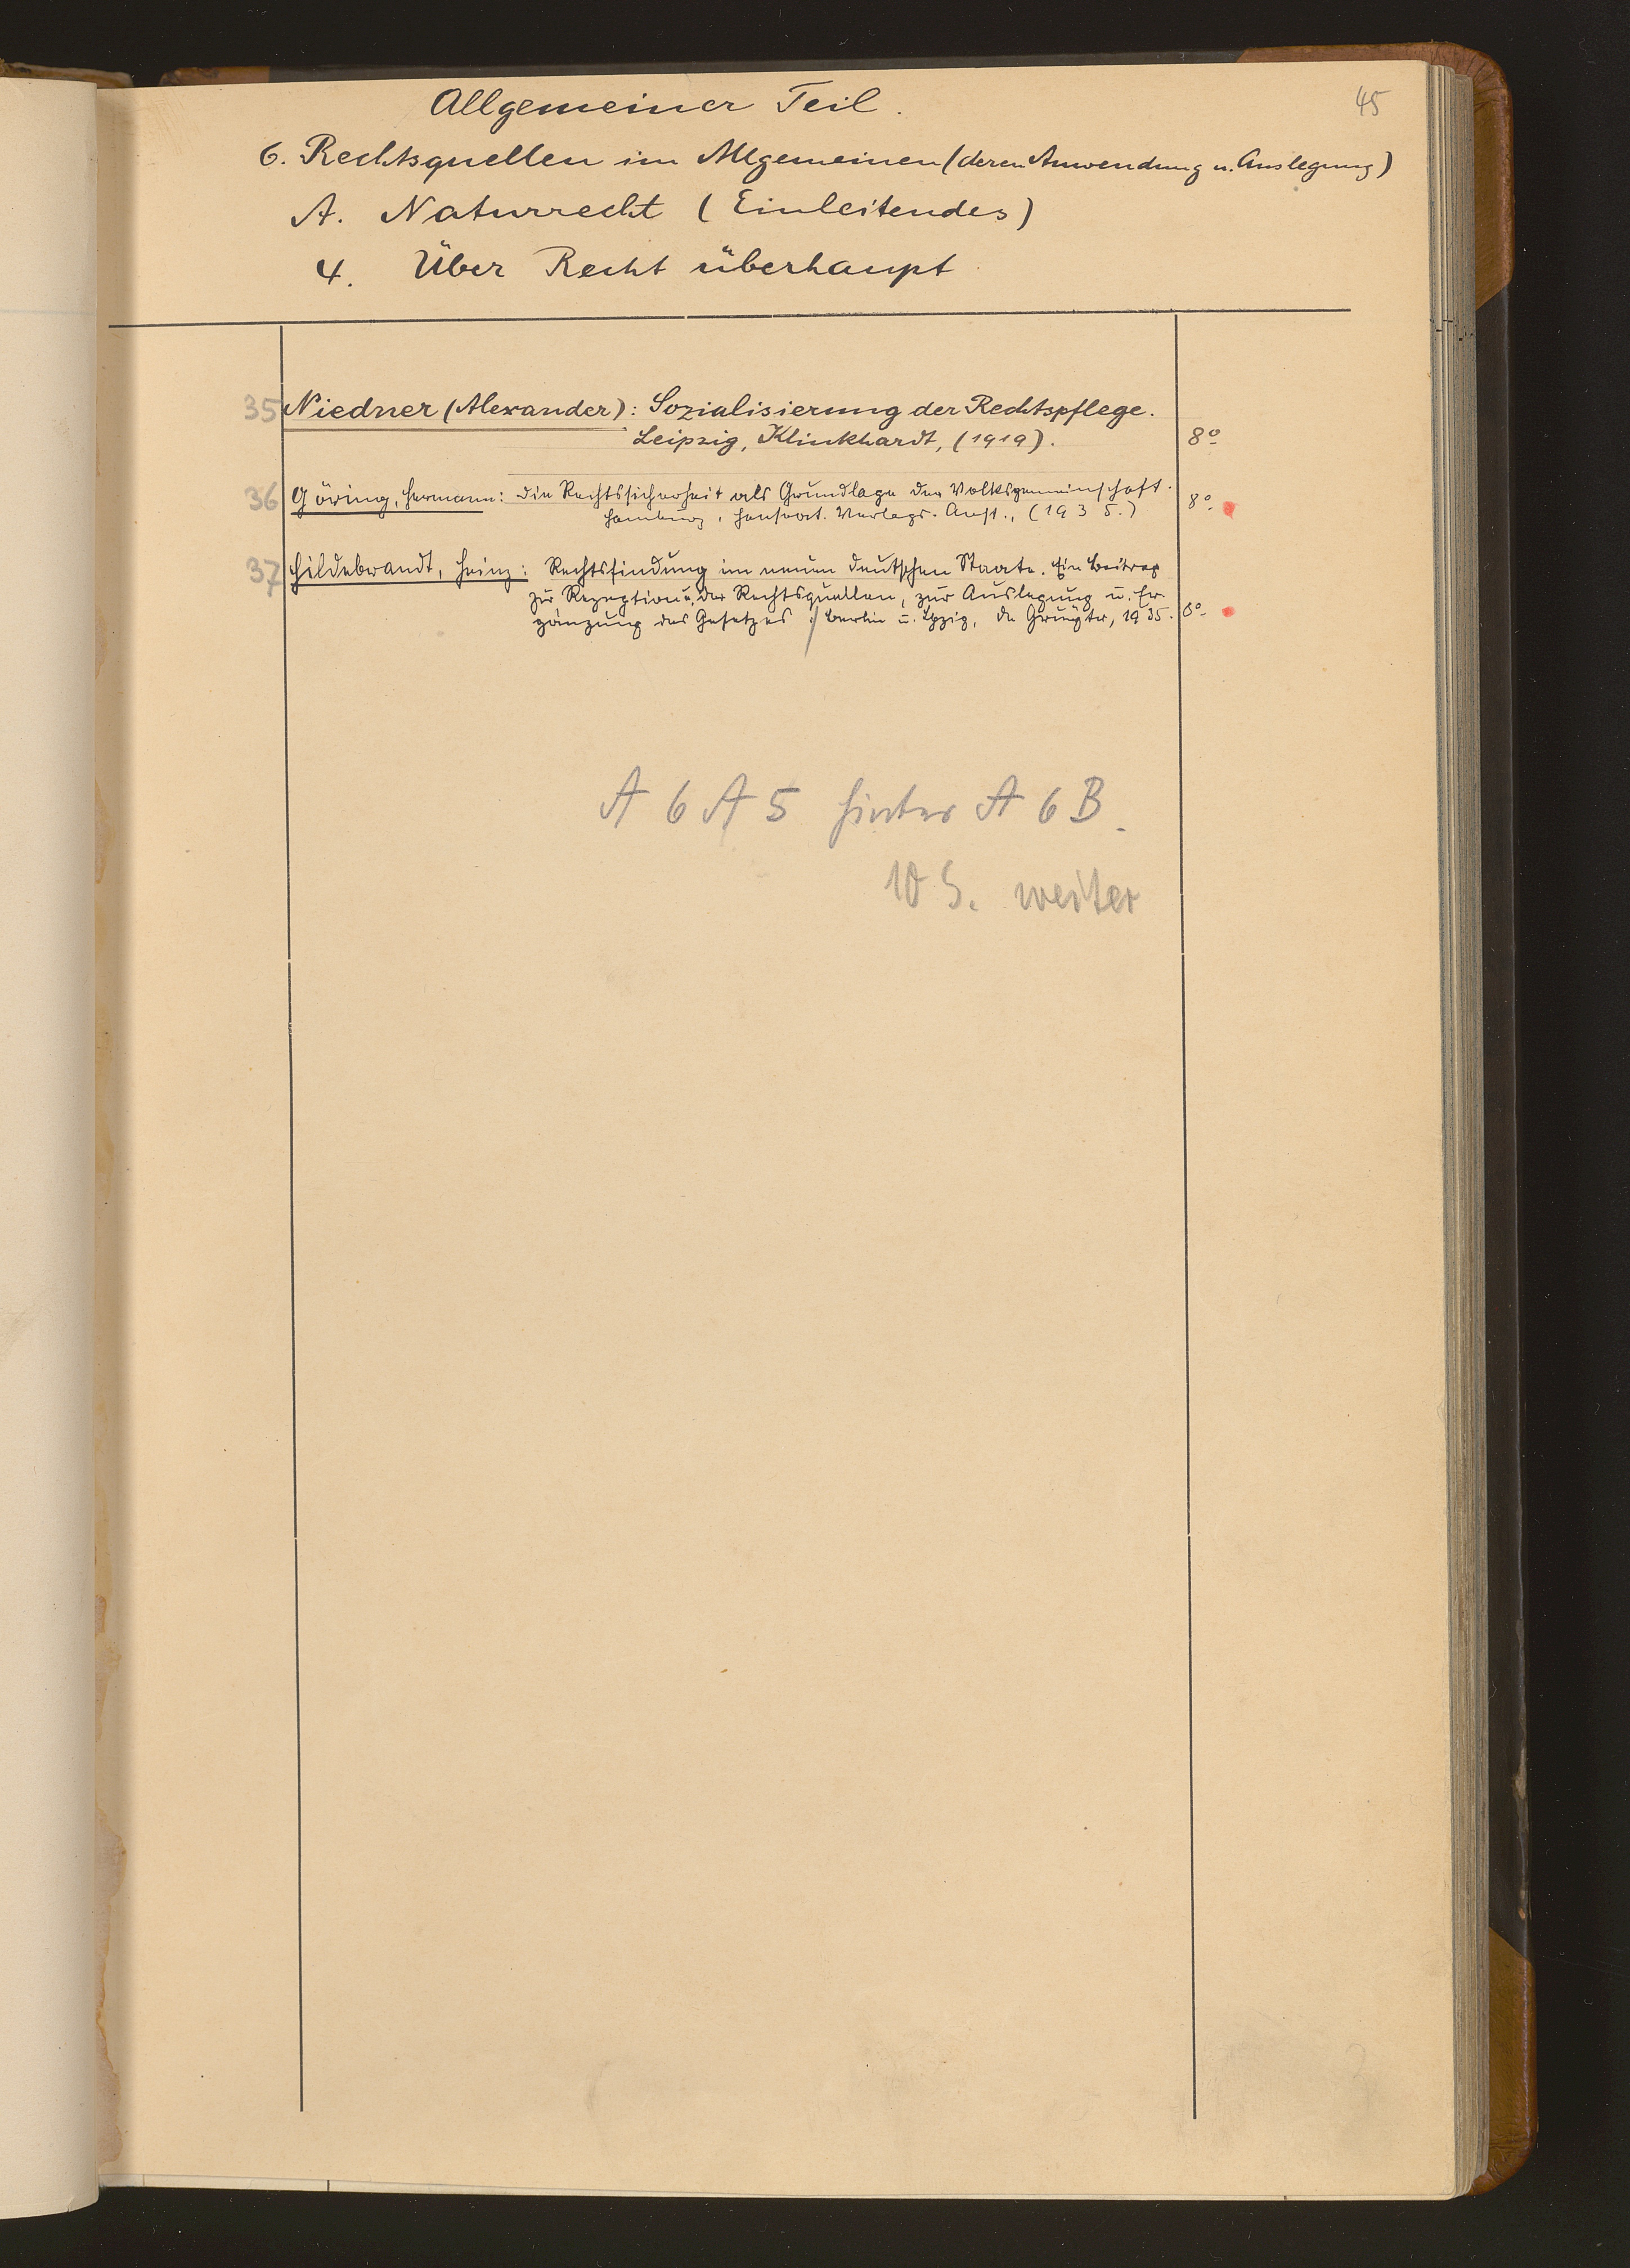 45
Allgemeiner Teil.
6. Rechtsquellen im Allgemeinen (deren Anwendung u. Auslegung)
A. Naturrecht (Einleitendes)
4. Über Recht überhaupt
35 Niedner (Alexander): Sozialisierung der Rechtspflege.
Leipzig, Klinkhardt, (1919). 8°
36 Göring, Hermann: Die Rechtssicherheit als Grundlage der Volksgemeinschaft.
Hamburg, Hanseat. Verlags-Anst., (1935.) 8°
37 Hildebrandt, Heinz: Rechtsfindung im neuen deutschen Staate. Ein Beitrag
zur Rezeption u. der Rechtsquellen, zur Auslegung u. Er-
gänzung des Gesetzes. / Berlin u. Lpzig, de Gruyter, 1935. 8°
A 6 A 5 hinter A 6 B.
10 S. weiter